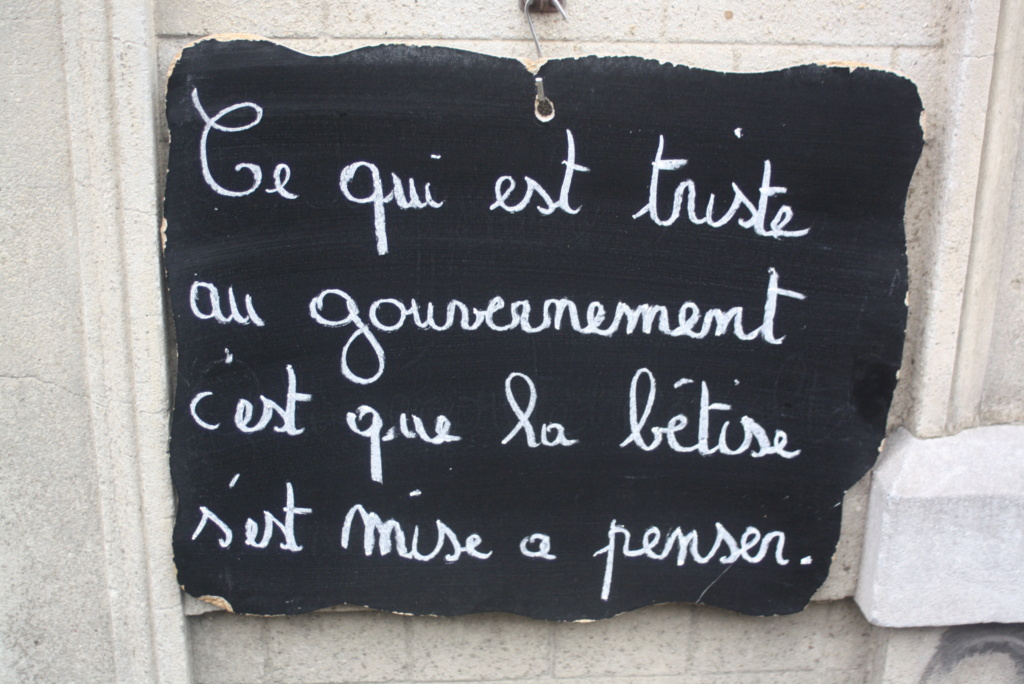 Ce qui est triste
au gouvernement
c'est que la bêtise
s'est mise a penser.